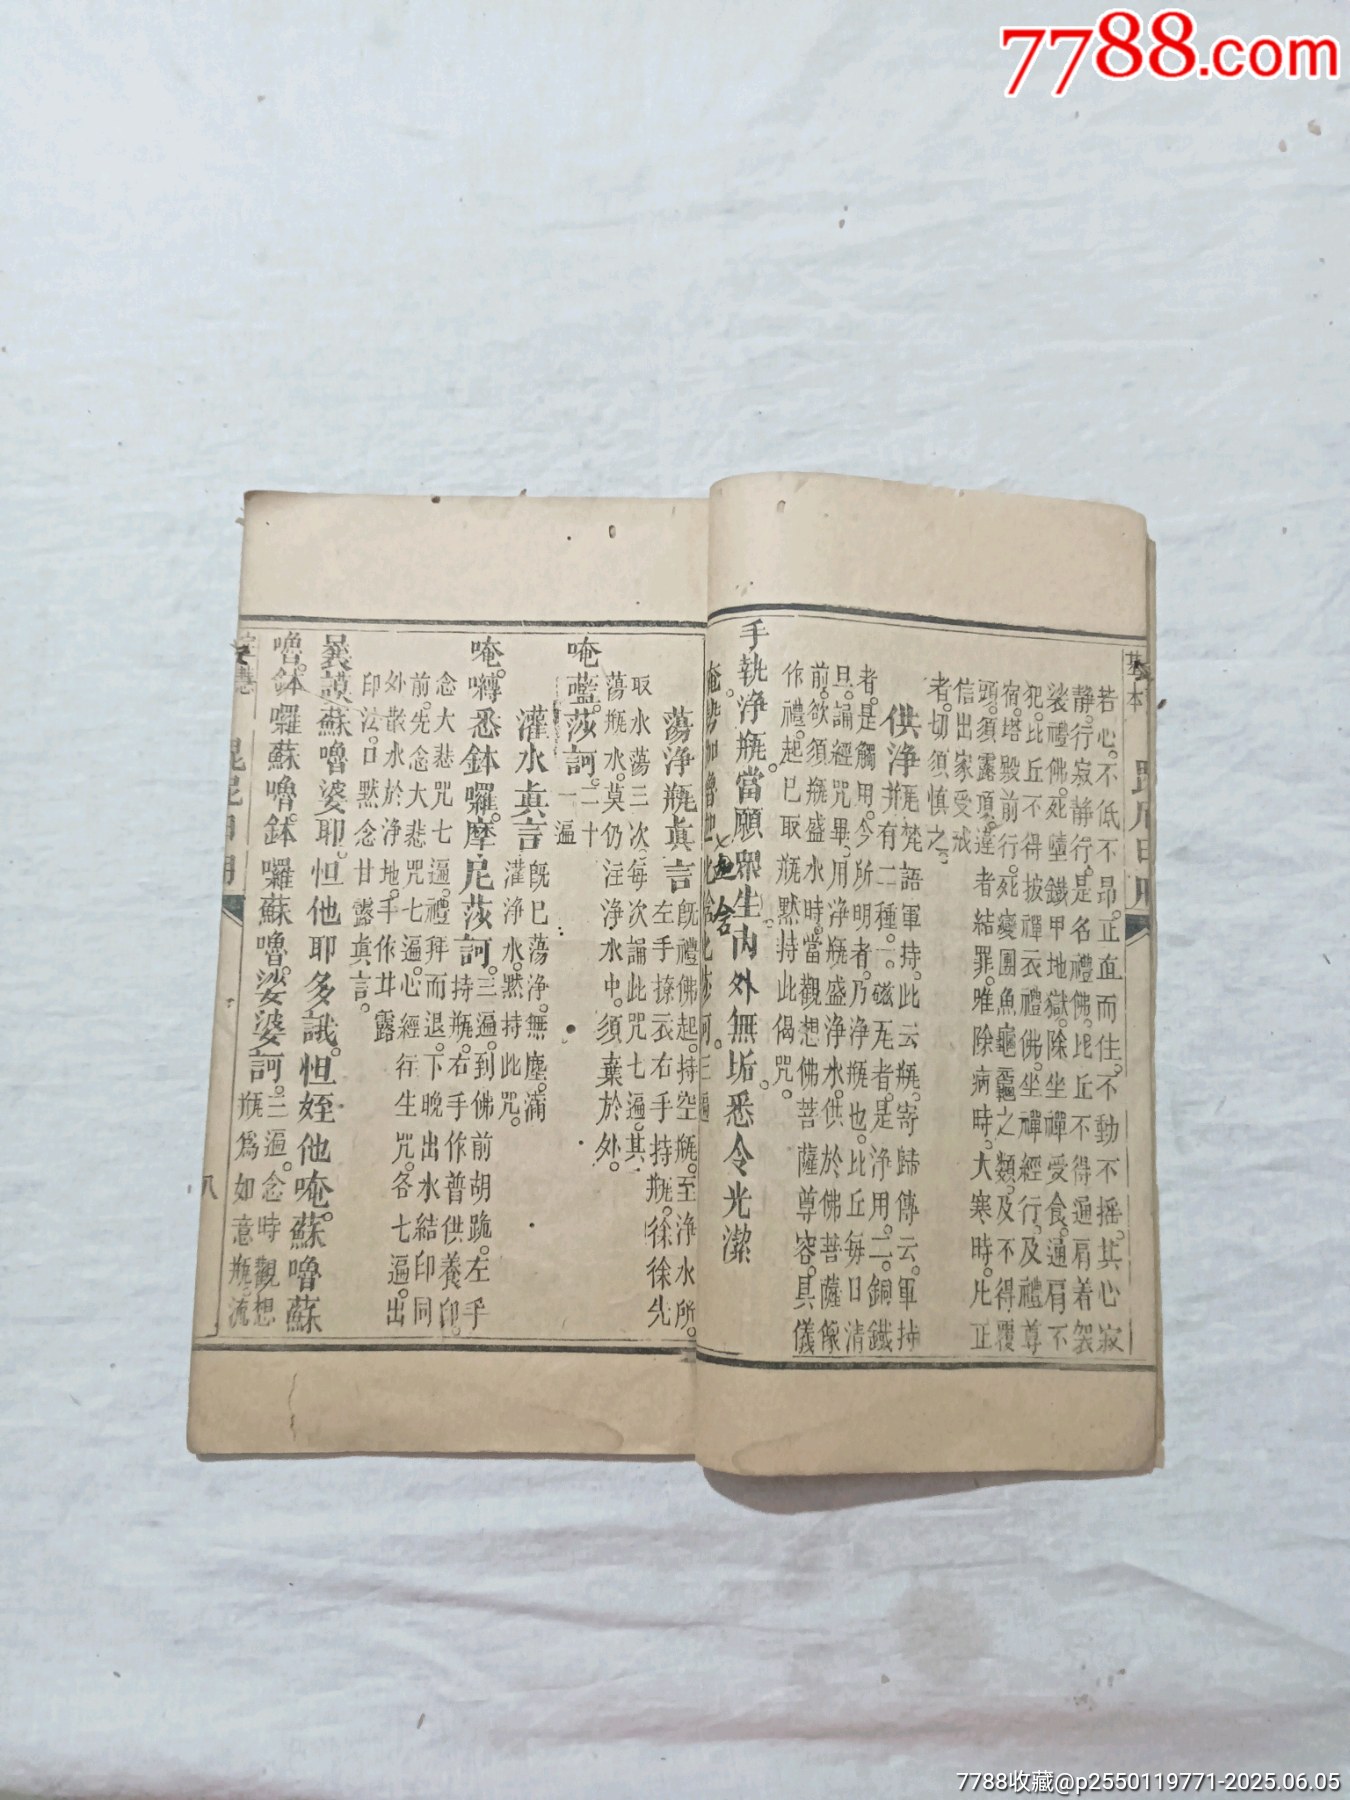 7788.com
若心。不低不昂。正直而住。不動不搖。其心寂
靜。行寂靜行。是名禮佛。比丘不得通肩着袈
裟禮佛。死墮鐵甲地獄。除坐禪受食。通肩不
犯。比丘不得披禪衣禮佛。坐禪經行。及禮尊
宿。塔殿前行。死變團魚龜鼉之類。及不得覆
頭。須露頂。違者結罪。唯除病時。大寒時。比正
信出家受戒
者。切須慎之。
供淨瓶 梵語軍持。此云瓶。寄歸傳云。軍持
并有二種。一。磁瓦者。是淨用。二。銅鐵
者。是觸用。今所明者。乃淨瓶也。比丘每日清
旦。誦經咒畢。用淨瓶盛淨水。供於佛菩薩像
前。欲須瓶盛水時。當觀想佛菩薩尊容。具儀
作禮。起已取瓶。默持此偈咒。
手執淨瓶。當願眾生。內外無垢。悉令光潔
蕩淨瓶真言 既禮佛起。持空瓶。至淨水所。
左手撩衣右手持瓶。徐徐先
取水蕩三次。每次誦此咒七遍。其
蕩瓶水。莫仍注淨水中。須棄於外。
唵。藍。莎訶。二十
一遍
灌水真言 既已蕩淨。無塵。滿
灌淨水。默持此咒。
唵。嚩悉鉢囉。摩尼莎訶。三遍。到佛前胡跪。左手
持瓶。右手作普供養印。
念大悲咒七遍。禮拜而退。下晚出水結印同
前。先念大悲咒七遍。心經往生咒。各七遍。出
外散水於淨地。手作甘露
印法。口默念甘露真言。
曩謨蘇嚕婆耶。怛他耶多誐。怛姪他唵。蘇嚕蘇
嚕。鉢囉蘇嚕。鉢囉蘇嚕。娑婆訶。三遍。念時觀想
瓶為如意瓶。流
八
7788收藏@p2550119771-2025.06.05